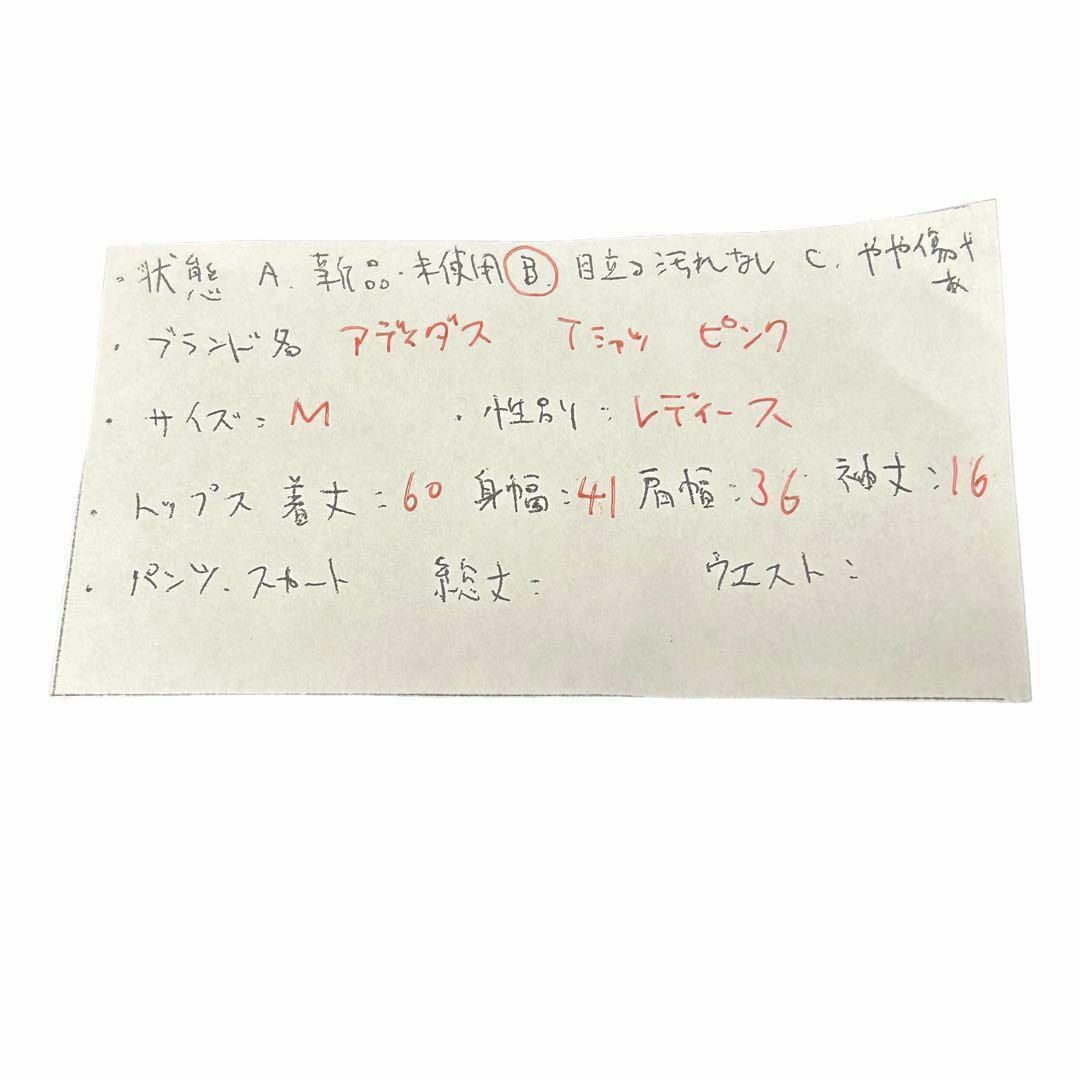 ・状態 A. 新品・未使用 B. 目立つ汚れなし C. やや傷や
・ブランド名 アディダス Tシャツ ピンク
・サイズ: M ・性別: レディース
・トップス 着丈:60 身幅:41 肩幅:36 袖丈:16
・パンツ、スカート 総丈: ウエスト: